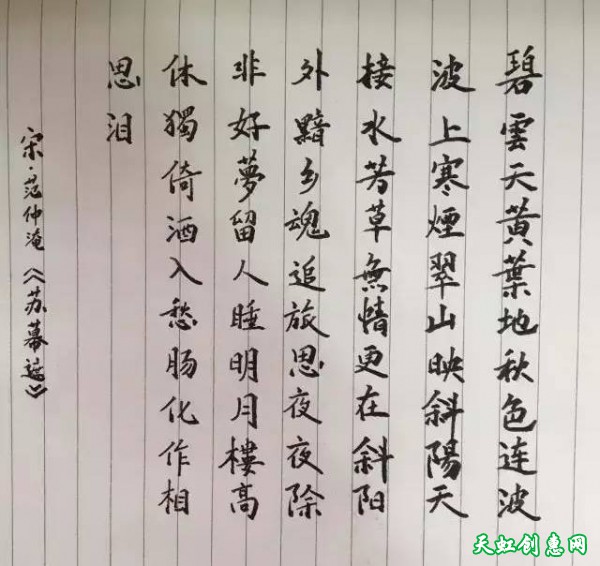 碧雲天黃葉地秋色连波
波上寒煙翠山映斜陽天
接水芳草無情更在斜阳
外黯乡魂追旅思夜夜除
非好夢留人睡明月樓高
休獨倚酒入愁肠化作相
思泪
宋·范仲淹《苏幕遮》
天虹创惠网